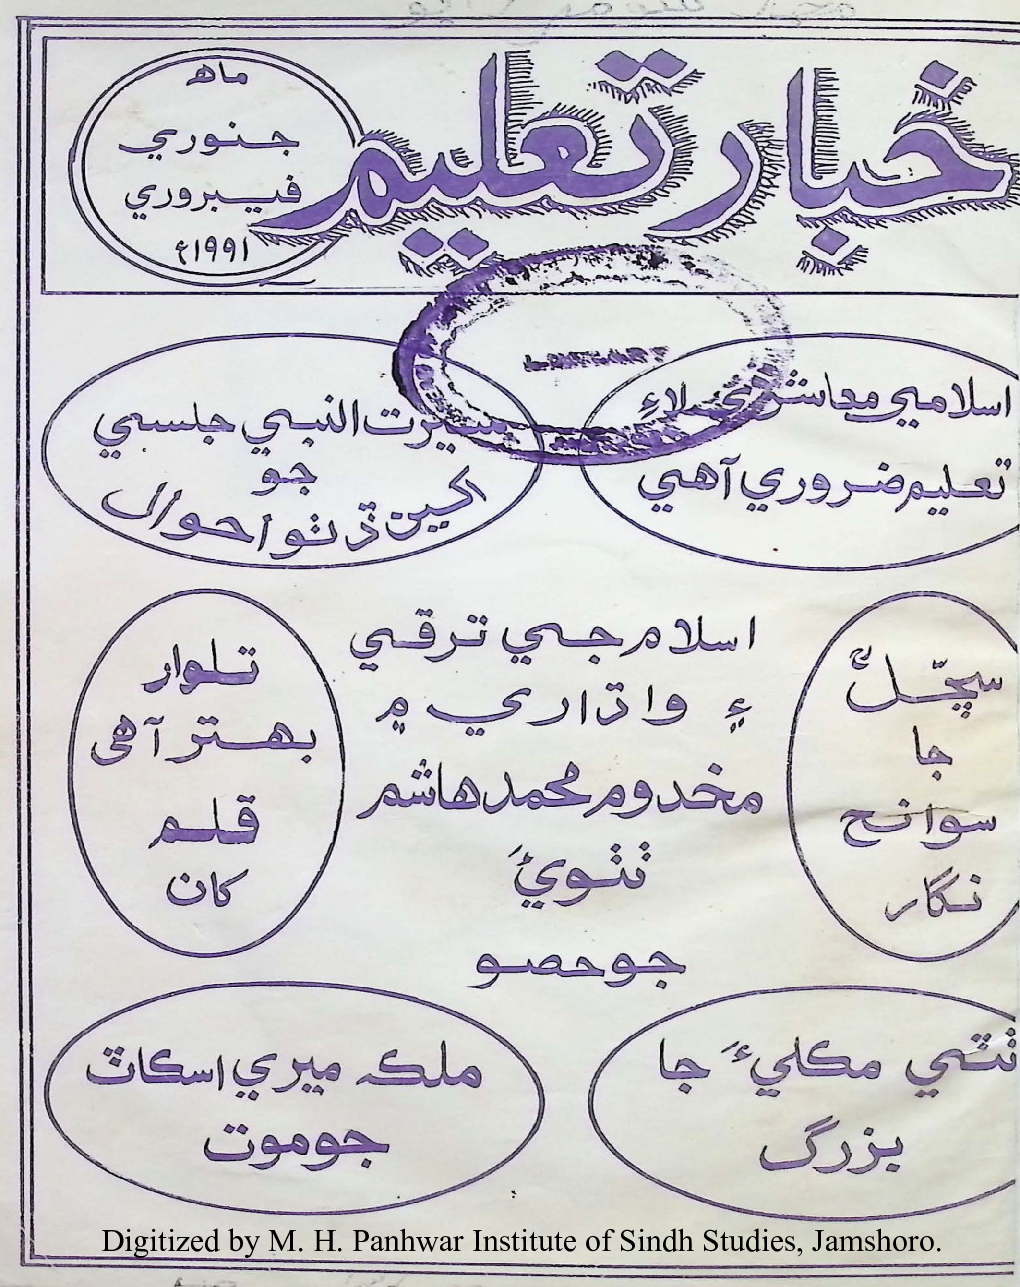 خبار تعليم
ماھ
جنوري
فيبروري
۱۹۹۱ع
اسلامي معاشري لاءِ
تعليم ضروري آهي
سيرت النبي جلسي
جو
اکين ڏٺو احوال
سچّل رح
جا
سوانح
نگار
اسلام جي ترقي
۽ واڌاري ۾
مخدوم محمد هاشم
ٺٽويؒ
جو حصو
تلوار
بهتر آهي
قلم
کان
ٺٽي مڪليءَ جا
بزرگ
ملڪہ ميري اسڪاٽ
جو موت
Digitized by M. H. Panhwar Institute of Sindh Studies, Jamshoro.